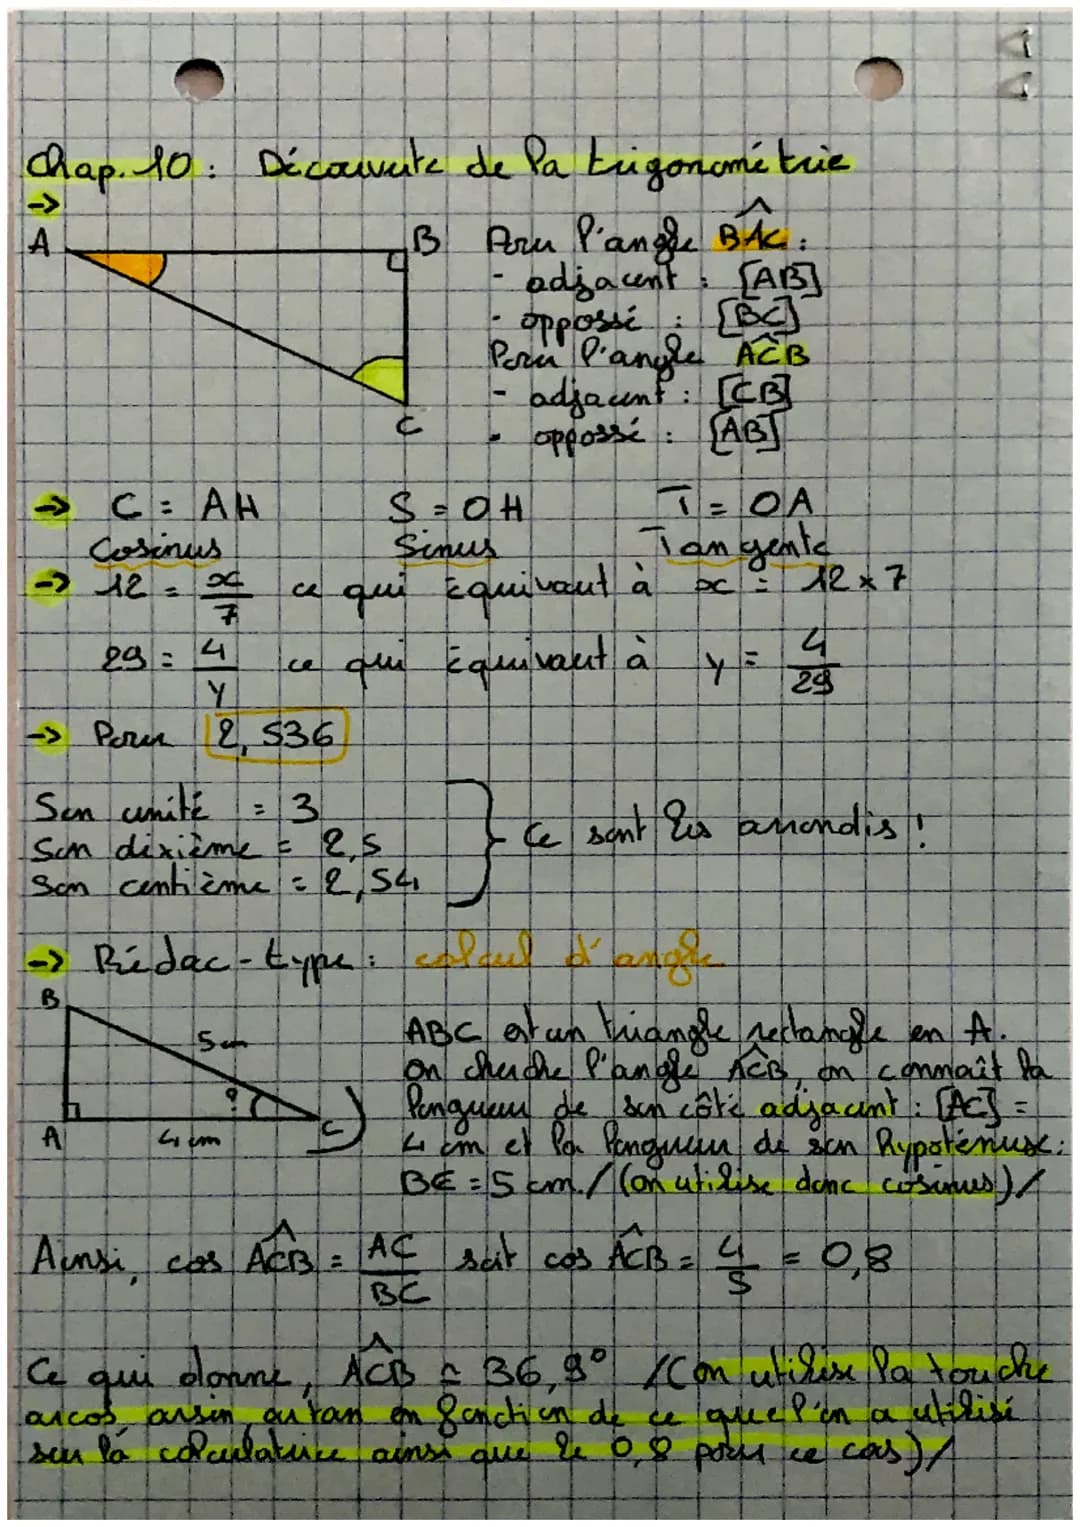 Chap. 10 : Découverte de la trigonométrie
->
A
B
C
Pour l'angle BAC :
- adjacent : [AB]
- oppossé : [BC]
Pour l'angle ACB
- adjacent : [CB]
- oppossé : [AB]
-> C = AH S = OH T = OA
Cosinus Sinus Tangente
-> 12 = x/7 ce qui équivaut à x = 12 x 7
29 = 4/y ce qui équivaut à y = 4/29
-> Pour 2,536
Son unité = 3
Son dixième = 2,5
Son centième = 2,54
Ce sont les arrondis !
-> Rédac-type : calcul d'angle
B
5 cm
?
A
4 cm
C
ABC est un triangle rectangle en A.
On cherche l'angle ACB, on connaît la
longueur de son côté adjacent : [AC] =
4 cm et la longueur de son hypoténuse :
BC = 5 cm. / (on utilise donc cosinus) /
Ainsi, cos ACB = AC/BC soit cos ACB = 4/5 = 0,8
Ce qui donne, ACB ≃ 36,9° / (On utilise la touche
arcos, arsin, artan en fonction de ce que l'on a utilisé
sur la calculatrice ainsi que le 0,8 pour ce cas) /